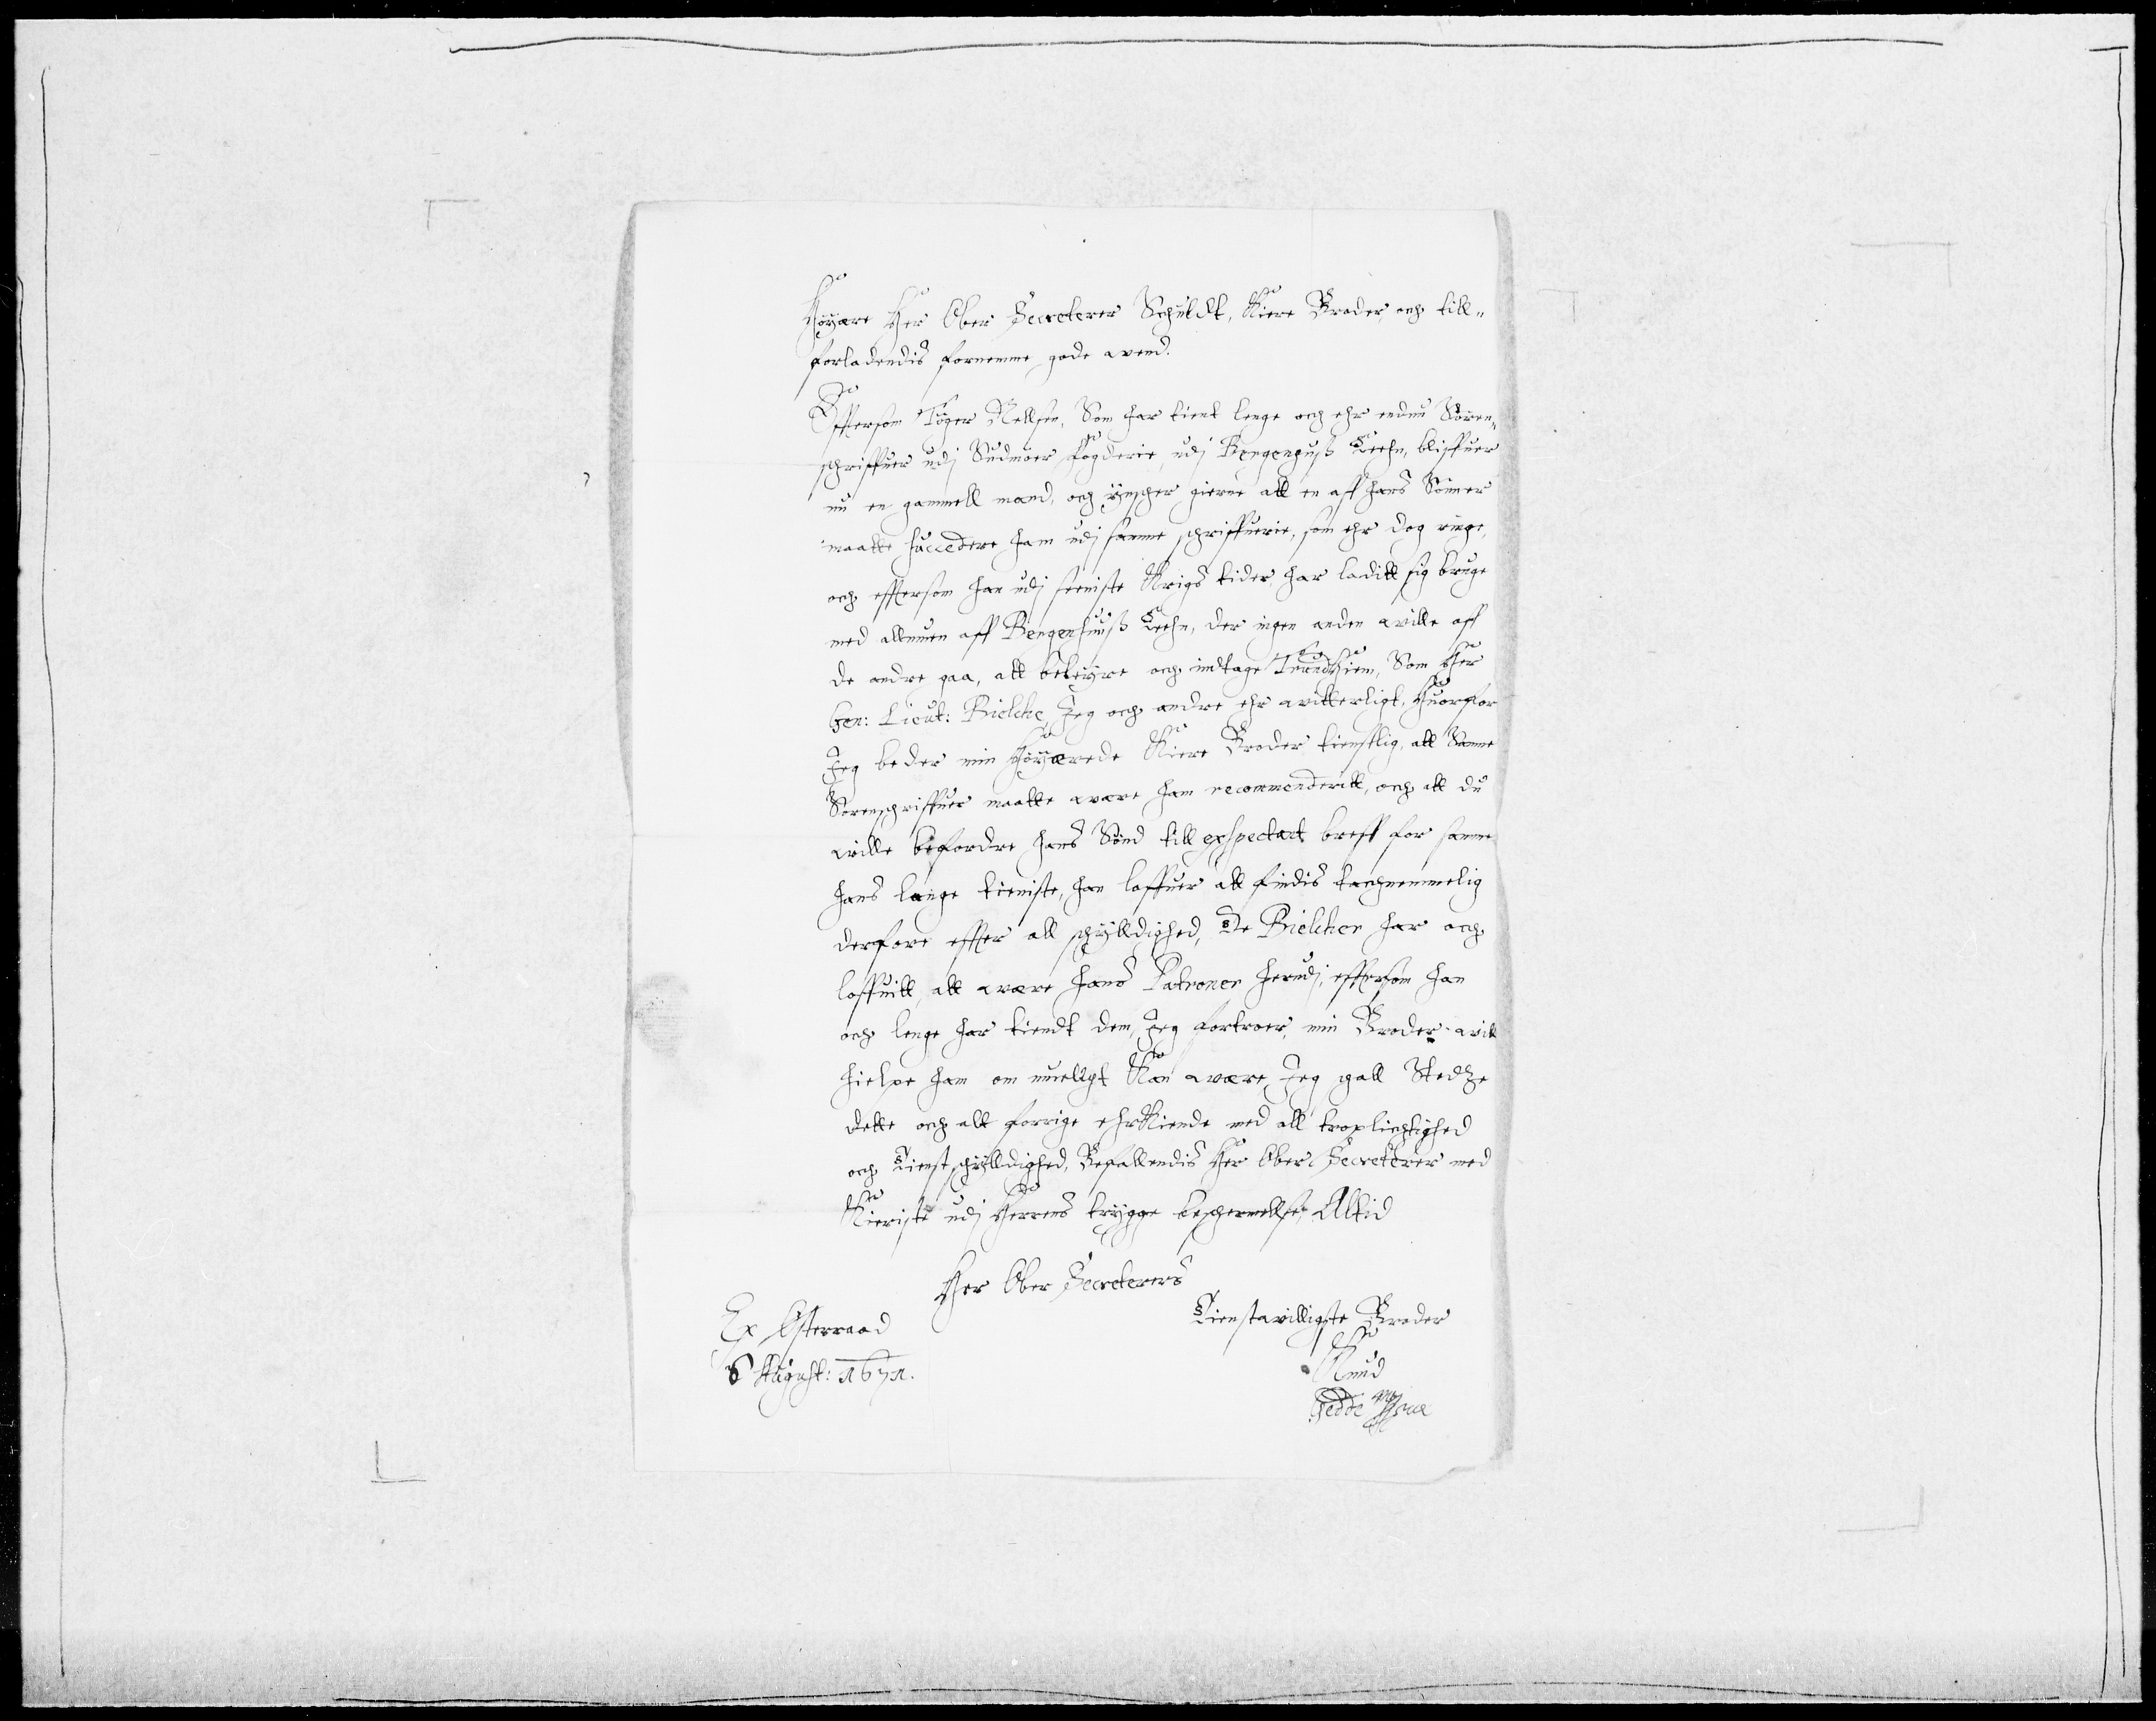 Höyære Her Ober Secreterer Schuldt, Kiere Broder och till„
forladendis fornemme gode wend.
Effterson Töger Nellsen, Som har tient lenge och ehr endnu Sören„
schriffuer udj Sudmöer fogderie, udj Bergenhuß Leehn, bliffuer
nu en gammell mand, och ynscher gierne att en aff hans Sönner
maatte succedere ham udj samme schriffuerie, som ehr dog ringe,
och effterson han udj seeniste Krigs tider, har ladit sig bruge
med allmuen aff Bergenhuuß Leehn, der ingen anden wille aff
de andre paa, att beleyre och indtage Trundhiem, Som Her
Gen: Lieut: Bielche, Jeg och andre ehr witterligt, Huorfor
Jeg beder min Höyærede Kiere Broder tienstlig, att Samme
Sorenschriffuer maatte ware ham recommenderitt, och att du
wille befordre hans Sönd till exspectatt breff for samme
hans lange tieniste, han loffuer att findis tachnemmelig
derfore effter all schylldighed, De Bielcker har och
loffuitt, att wære hans Patroner herudj, effterson han
och lenge har tiendt dem, Jeg fortroer, min Broder will
hielpe ham om mueligt Kan wære, Jeg schall Stedtze
dette och alt forrige ehrKiende med all troplichtighed
och Tienstschylldighed, Befallendis Her Ober Secreterer med
Kieriste udj Herrens trygge beschermellse, Alltid
Her Ober Secreterers
Tienstwilligste Broder
Ex Österraad
6 August: 1671.
Knud
Gedde